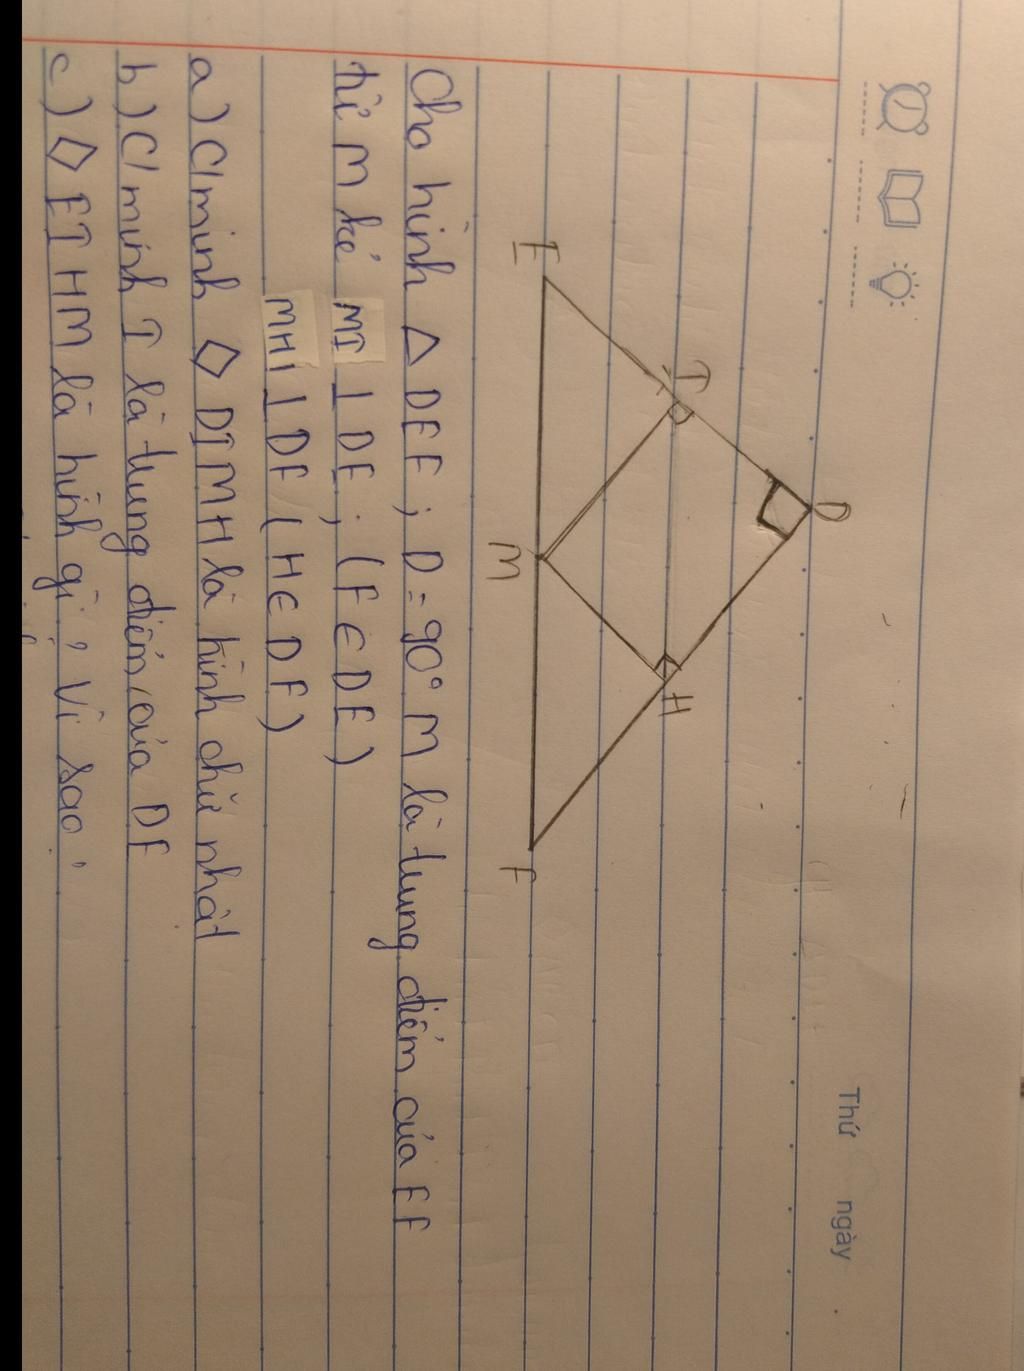 Thứ ngày
D
I
H
E
M
F
Cho hình △ DEF ; D = 90° M là trung điểm của EF
từ M kẻ MI ⊥ DE ; (F ∈ DE)
MH ⊥ DF (H ∈ DF)
a) C/minh ◇ DIMH là hình chữ nhật
b) C/minh I là trung điểm của DF
c) ◇ EIHM là hình gì ? Vì sao ?